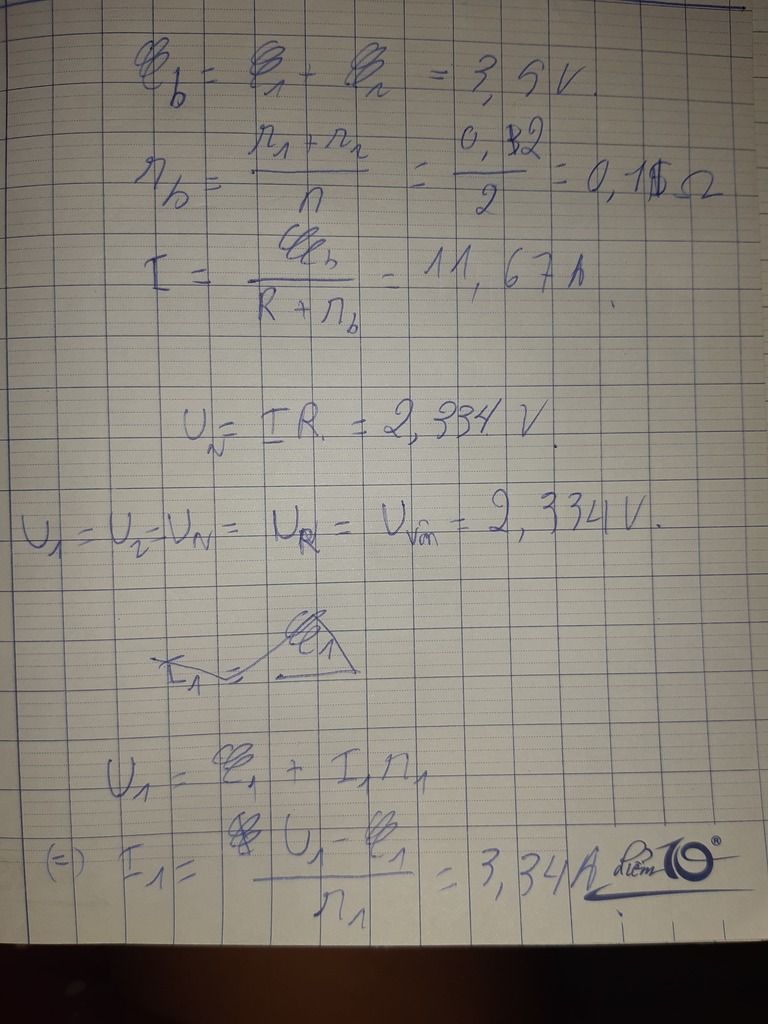 ℰb = ℰ1 + ℰ2 = 3,5 V.
rb = (r1 + r2)/n = 0,2/2 = 0,1 Ω
I = ℰb/(R + rb) = 11,67 A.
UN = IR. = 2,334 V.
U1 = U2 = UN = UR = Uvôn = 2,334 V.
I1 = ℰ1
U1 = ℰ1 + I1 r1
(=) I1 = (U1 - ℰ1)/r1 = 3,34 A
Điểm 10 ®